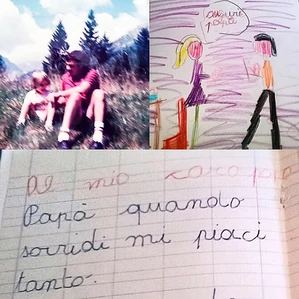 auguri
papà
Al mio caro papà
Papà quando
sorridi mi piaci
tanto.